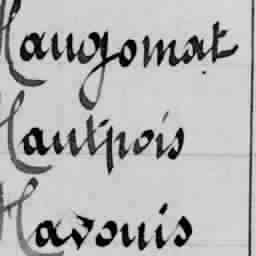 Haugomat
Hautpois
Havouis